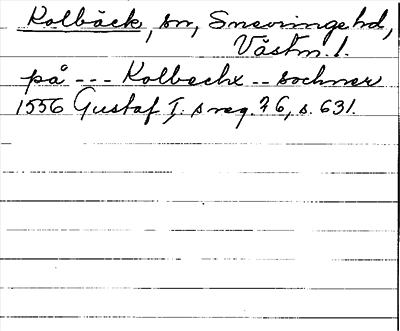 Kolbäck, sn, Snevringe hd,
Västm. l.
på --- Kolbechx -- sochner
1556 Gustaf I:s reg. 26, s. 631.